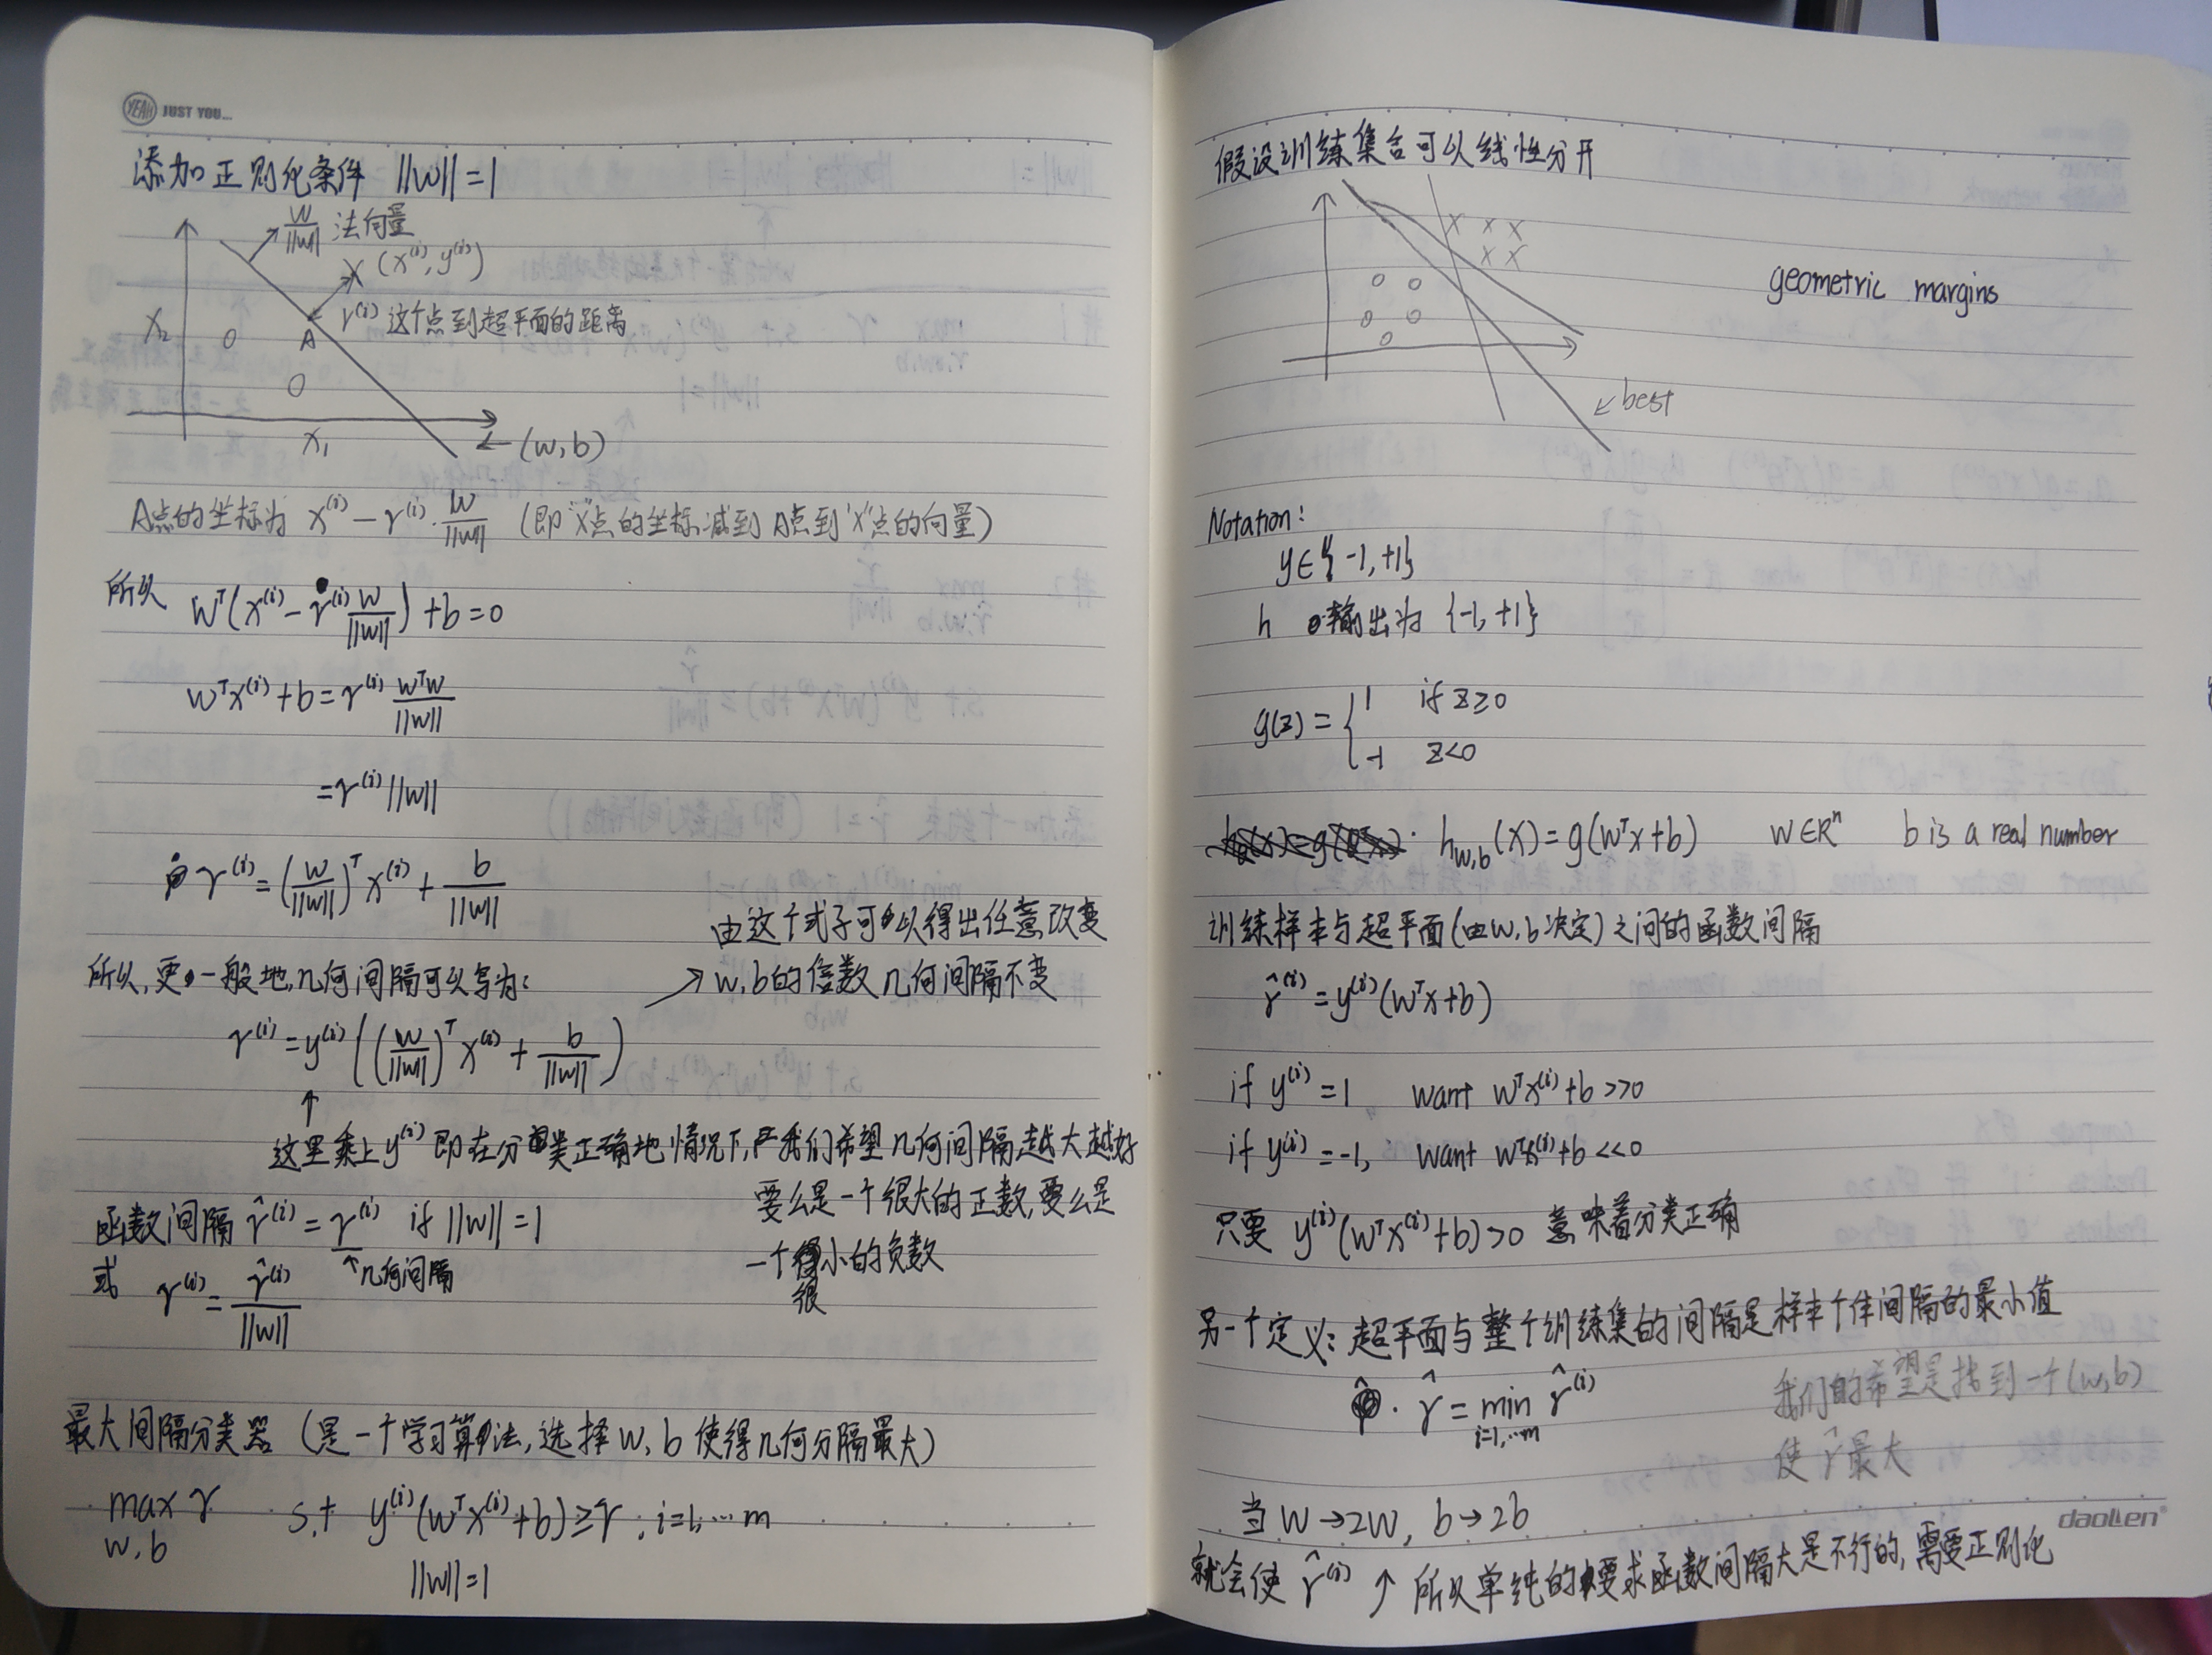 YEAH JUST YOU...
添加正则化条件 ||w||=1
w/||w|| 法向量
X (x^(i), y^(i))
γ^(i) 这个点到超平面的距离
X₂ O A
O
X₁ ← (w,b)
A点的坐标为 x^(i) - γ^(i)· w/||w|| (即"X"点的坐标减到 A点到"X"点的向量)
所以 w^T(x^(i) - γ^(i) w/||w||) + b = 0
w^Tx^(i) + b = γ^(i) w^Tw/||w||
= γ^(i) ||w||
γ^(i) = (w/||w||)^T x^(i) + b/||w||
所以,更一般地,几何间隔可以写为:
γ^(i) = y^(i) ((w/||w||)^T x^(i) + b/||w||)
→ 由这个式子可以得出任意改变
w,b的倍数几何间隔不变
↑
这里乘上 y^(i) 即在分类正确地情况下,我们希望几何间隔越大越好
要么是一个很大的正数,要么是
一个很小的负数
函数间隔 γ̂^(i) = γ^(i) if ||w||=1
↑几何间隔
或 γ^(i) = γ̂^(i)/||w||
最大间隔分类器 (是一个学习算法,选择 w,b 使得几何分隔最大)
max γ s.t y^(i)(w^Tx^(i)+b)≥γ, i=1,…m
w,b
||w||=1
假设训练集合可以线性分开
X X X
X X
O O
O O
O
geometric margins
↙ best
Notation:
y∈{-1,+1}
h 输出为 {-1,+1}
g(z) = { 1 if z≥0
-1 z<0
h_w,b(x)=g(w^Tx+b) w∈R^n b is a real number
训练样本与超平面(由w,b决定)之间的函数间隔
γ̂^(i) = y^(i)(w^Tx+b)
if y^(i)=1, want w^Tx^(i)+b>>0
if y^(i)=-1, want w^Tx^(i)+b<<0
只要 y^(i)(w^Tx^(i)+b)>0 意味着分类正确
另一个定义: 超平面与整个训练集的间隔是样本个体间隔的最小值
γ̂ = min γ̂^(i)
i=1,…m
我们的希望是找到一个(w,b)
使 γ̂ 最大
当 w→2w, b→2b
daolen
就会使 γ̂^(i) ↑ 所以单纯的要求函数间隔大是不行的,需要正则化